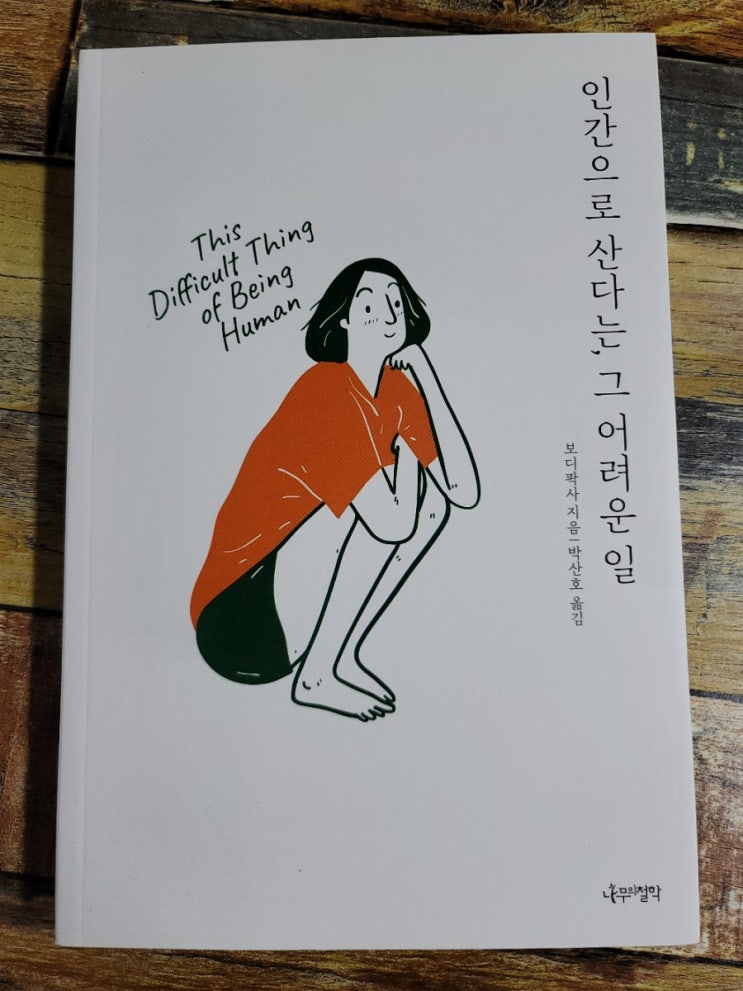 인간으로 산다는, 그 어려운 일
This
Difficult Thing
of Being
Human
보디팍사 지음 | 박산호 옮김
나무의철학